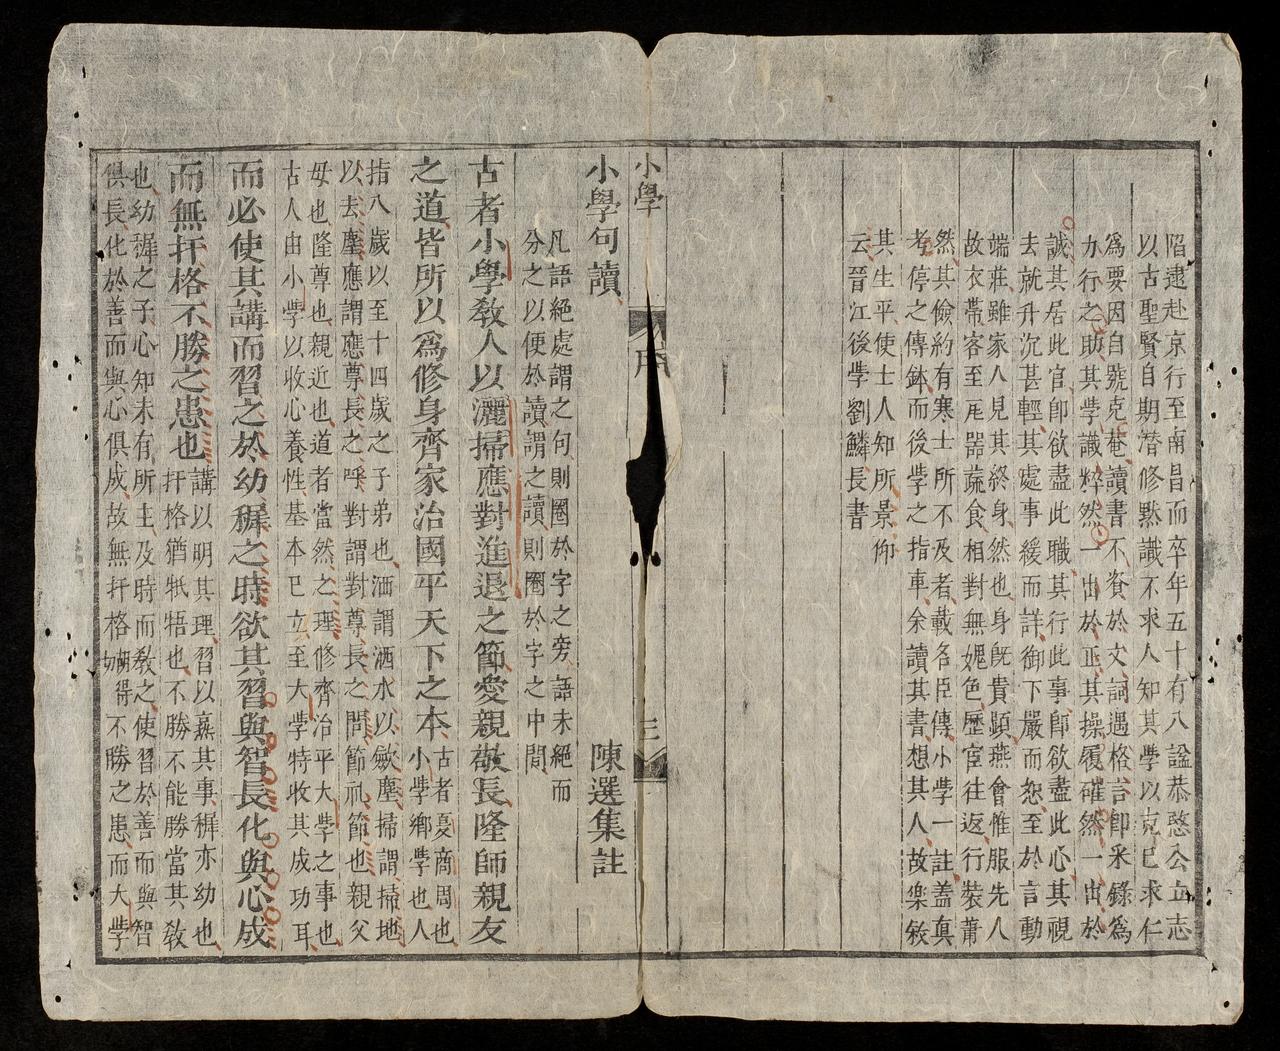 陷逮赴京行至南昌而卒年五十有八謚恭愍公立志
以古聖賢自期潛修黙識不求人知其學以克已求仁
為要因自號克菴讀書不資於文詞遇格言卽采錄為
力行之助其學識粹然一出於正其操履確然一出於
誠其居此官卽欲盡此職其行此事卽欲盡此心其視
去就升沉甚輕其處事緩而詳御下嚴而恕至於言動
端莊雖家人見其終身然也身旣貴顕燕會惟服先人
故衣帶客至瓦器蔬食相對無媿色歷宦往返行裝蕭
然其儉約有寒士所不及者載名臣傳小學一註蓋真
考停之傳鉢而後學之指車余讀其書想其人故樂敘
其生平使士人知所景仰
云晉江後學劉鱗長書
小學
三
小學句讀 陳選集註
凡語絕處謂之句則圈於字之旁語未絕而
分之以便於讀謂之讀則圈於字之中間
古者小學教人以灑掃應對進退之節愛親敬長隆師親友
之道皆所以爲修身齊家治國平天下之本
古者夏商周也
小學鄉學也人
指八歲以至十四歲之子弟也洒謂洒水以歛塵掃謂掃地
以去塵應謂應尊長之呼對謂對尊長之問節礼節也親父
母也隆尊也親近也道者當然之理修齊治平大學之事也
古人由小學以收心養性基本已立至大學特收其成功耳
而必使其講而習之於幼穉之時欲其習與智長化與心成
而無扞格不勝之患也
講以明其理習以熟其事穉亦幼也
扞格猶牴牾也不勝不能勝當其敎
也幼穉之子心知未有所主及時而敎之使習於善而與智
俱長化於善而與心俱成故無扞格難得不勝之患而大學